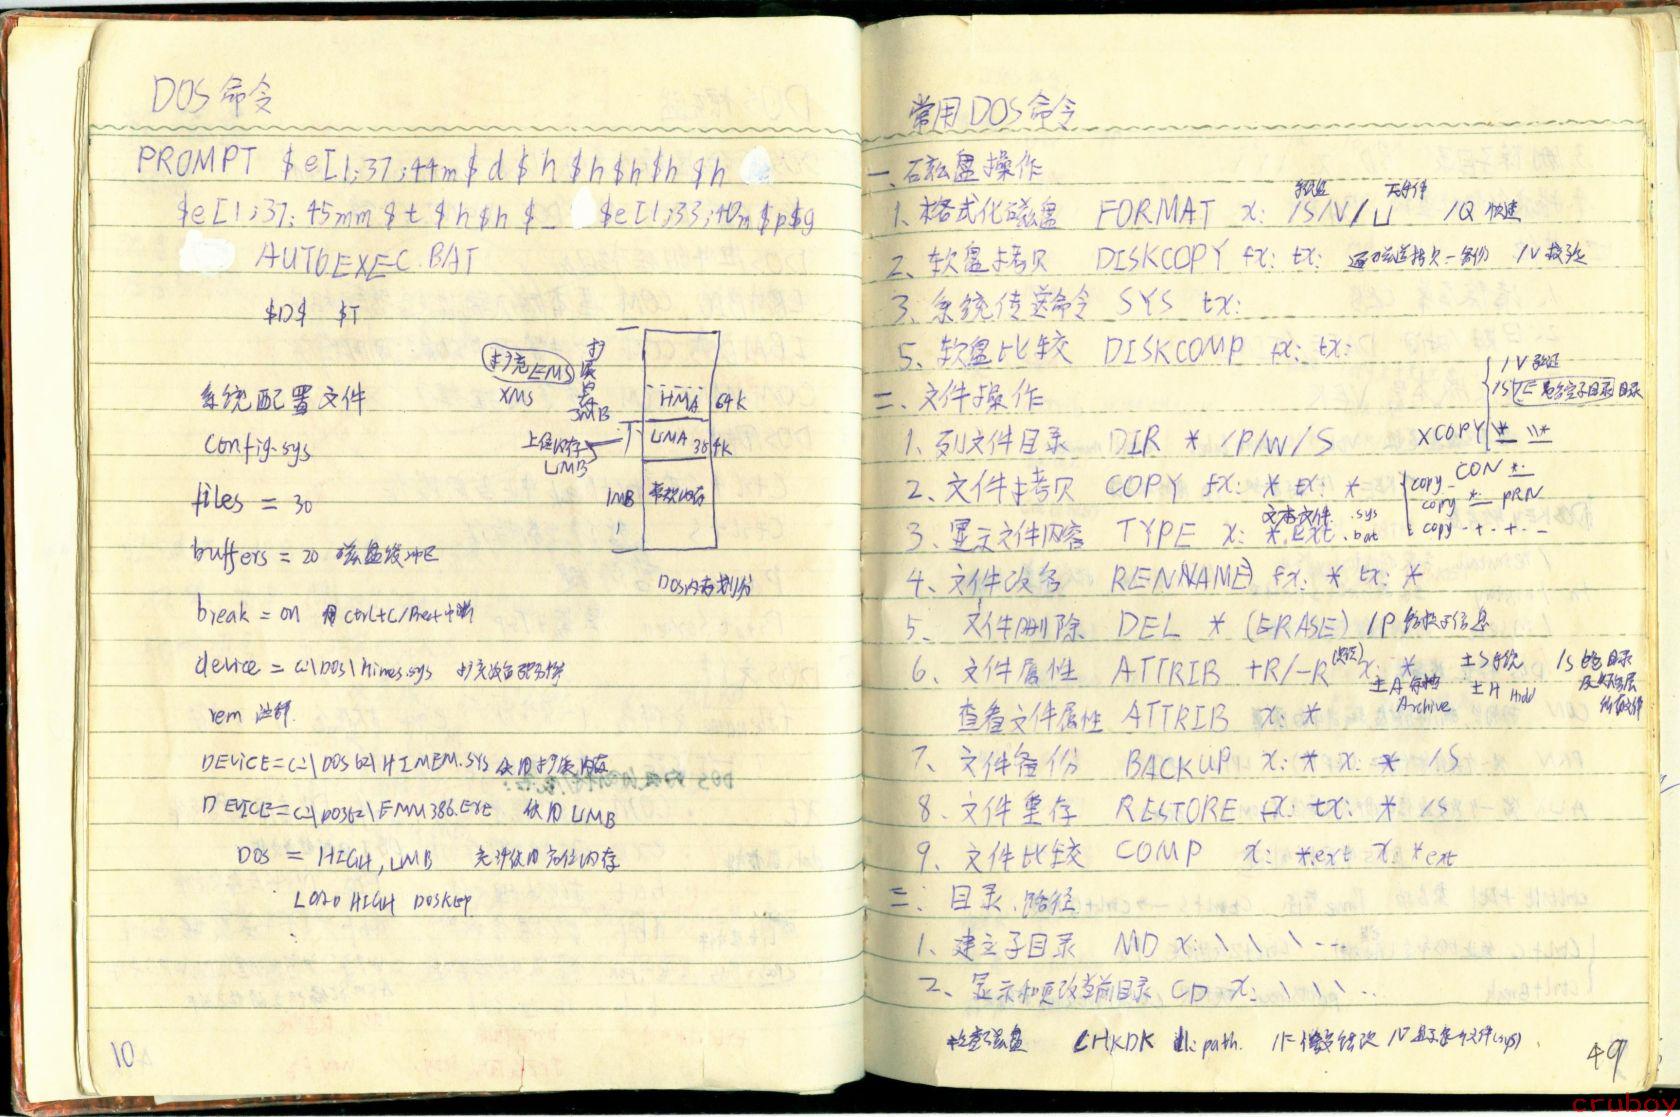 DOS命令
PROMPT $e[1;37;44m$d$h$h$h$h$h
$e[1;37;45mm$t$h$h$_ $e[1;33;40m$p$g
AUTOEXEC.BAT
$D$ $T
系统配置文件
config.sys
files = 30
buffers = 20 磁盘缓冲区
break = on 用Ctrl+C/Break中断
device = C:\DOS\himes.sys
rem 注释
DEVICE=C:\DOS62\HIMEM.SYS 使用扩展内存
DEVICE=C:\DOS62\EMM386.EXE 使用UMB
DOS = HIGH,UMB 允许使用高位内存
LOAD HIGH DOSKEY
扩充EMS
XMS
扩展
3MB
HMA 64K
上位内存
UMB
UMA 384K
1MB 常规内存
DOS内存划分
10
常用DOS命令
一、磁盘操作
1、格式化磁盘 FORMAT x: /S/V/U /Q 快速
2、软盘拷贝 DISKCOPY fx: tx: 逐磁道拷贝一备份 /V 校验
3、系统传送命令 SYS tx:
5、软盘比较 DISKCOMP fx: tx:
/V 验证
二、文件操作
1、列文件目录 DIR * /P/W/S XCOPY
2、文件拷贝 COPY fx: * tx: * copy CON *.
copy *. PRN
文本文件 .sys
3、显示文件内容 TYPE x: *.EXT .bat copy . + . + .
4、文件改名 REN(NAME) fx: * tx: *
5、文件删除 DEL * (ERASE) /P 给提示信息
6、文件属性 ATTRIB +R/-R x: * ±S系统 /S
±A 存档 ±H Hidd
Archive
查看文件属性 ATTRIB x: *
7、文件备份 BACKUP x: * x: * /S
8、文件重存 RESTORE fx: tx: * /S
9、文件比较 COMP x: *.ext x *ext
三: 目录、路径
1、建立子目录 MD x: \ \ \ ...
2、显示和更改当前目录 CD x: \ \ \ ..
检查磁盘 CHKDK path. /F 修改错误 /V
49
cruboy